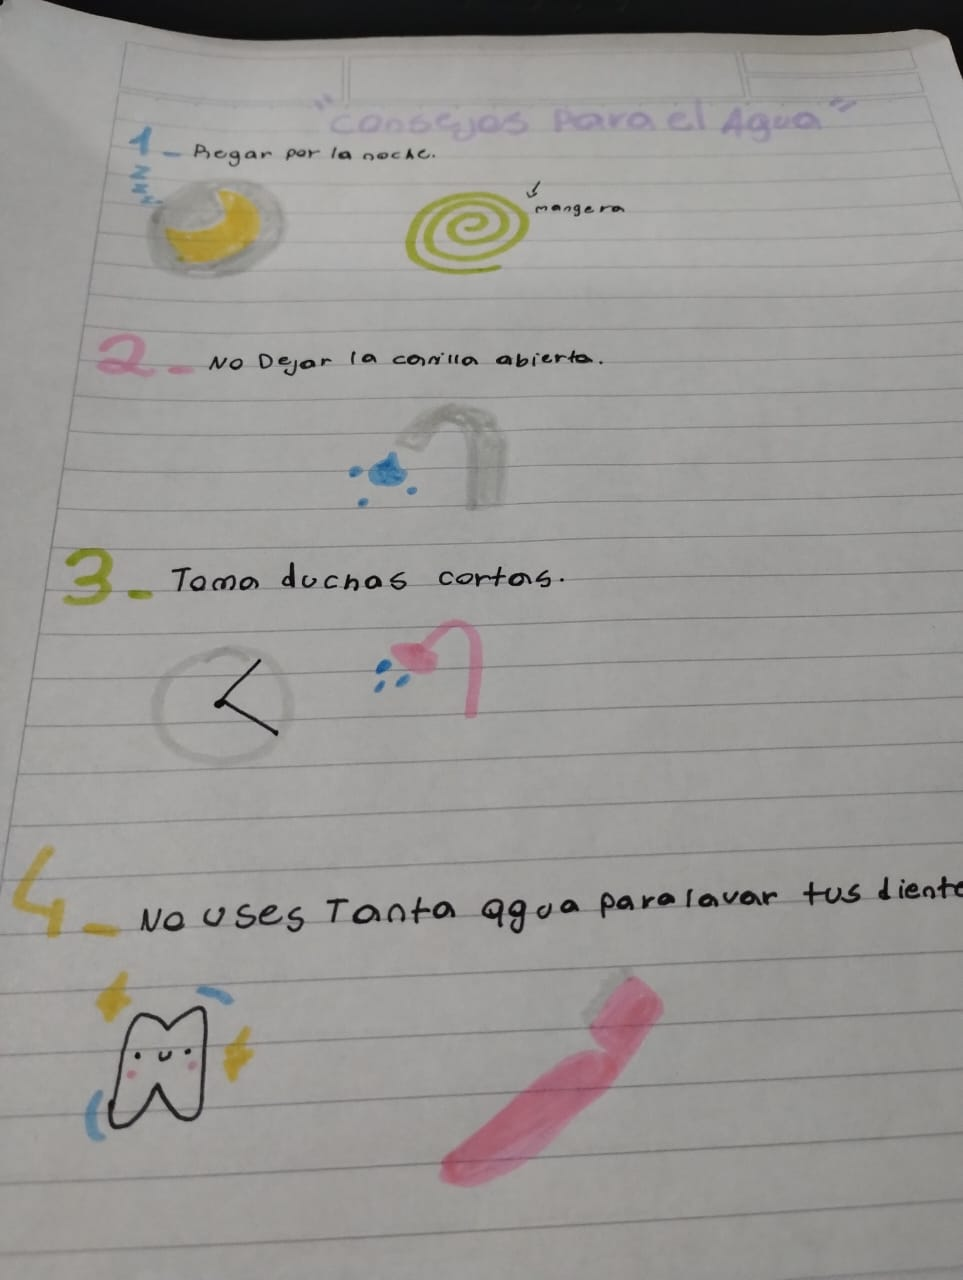 "Consejos Para el Agua"
1- Regar por la noche.
zzz
mangera
2- No Dejar la canilla abierta.
3- Toma duchas cortas.
4- No uses Tanta agua para lavar tus diente